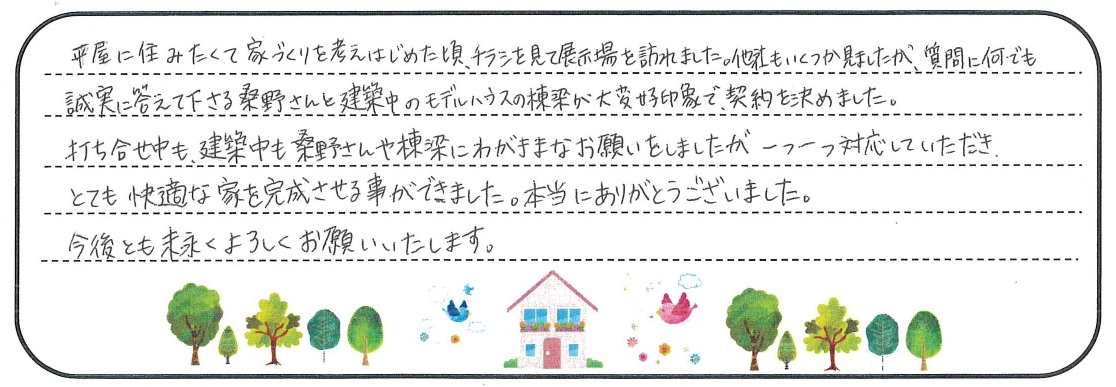 平屋に住みたくて家づくりを考えはじめた頃、チラシを見て展示場を訪れました。他社もいくつか見ましたが、質問に何でも
誠実に答えて下さる桑野さんと建築中のモデルハウスの棟梁が大変好印象で、契約を決めました。
打ち合せ中も、建築中も桑野さんや棟梁にわがままなお願いをしましたが一つ一つ対応していただき、
とても快適な家を完成させる事ができました。本当にありがとうございました。
今後とも末永くよろしくお願いいたします。